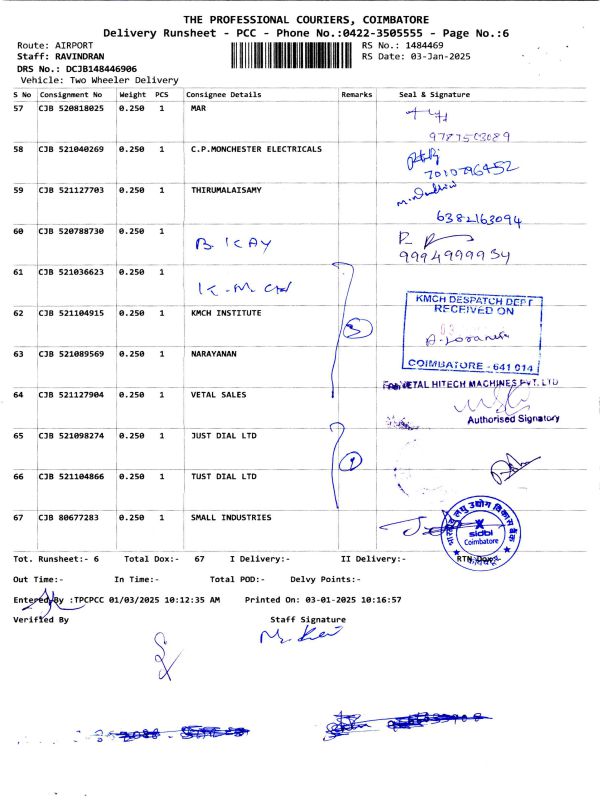 THE PROFESSIONAL COURIERS, COIMBATORE
Delivery Runsheet - PCC - Phone No.:0422-3505555 - Page No.:6
Route: AIRPORT RS No.: 1484469
Staff: RAVINDRAN RS Date: 03-Jan-2025
DRS No.: DCJB148446906
Vehicle: Two Wheeler Delivery
S No Consignment No Weight PCS Consignee Details Remarks Seal & Signature
57 CJB 520818025 0.250 1 MAR
9787503089
58 CJB 521040269 0.250 1 C.P.MONCHESTER ELECTRICALS
7010796452
59 CJB 521127703 0.250 1 THIRUMALAISAMY
6382163094
60 CJB 520788730 0.250 1 B. ICAY
9994999934
61 CJB 521036623 0.250 1 K.M.CH
KMCH DESPATCH DEPT
RECEIVED ON
62 CJB 521104915 0.250 1 KMCH INSTITUTE 5
63 CJB 521089569 0.250 1 NARAYANAN
COIMBATORE - 641 014
VETAL HITECH MACHINES PVT. LTD
64 CJB 521127904 0.250 1 VETAL SALES
Authorised Signatory
65 CJB 521098274 0.250 1 JUST DIAL LTD
66 CJB 521104866 0.250 1 TUST DIAL LTD
67 CJB 80677283 0.250 1 SMALL INDUSTRIES
भारतीय लघु उद्योग विकास बैंक
sidbi
Coimbatore
Tot. Runsheet:- 6 Total Dox:- 67 I Delivery:- II Delivery:- RTN Dox:-
Out Time:- In Time:- Total POD:- Delvy Points:-
Entered By :TPCPCC 01/03/2025 10:12:35 AM Printed On: 03-01-2025 10:16:57
Verified By Staff Signature